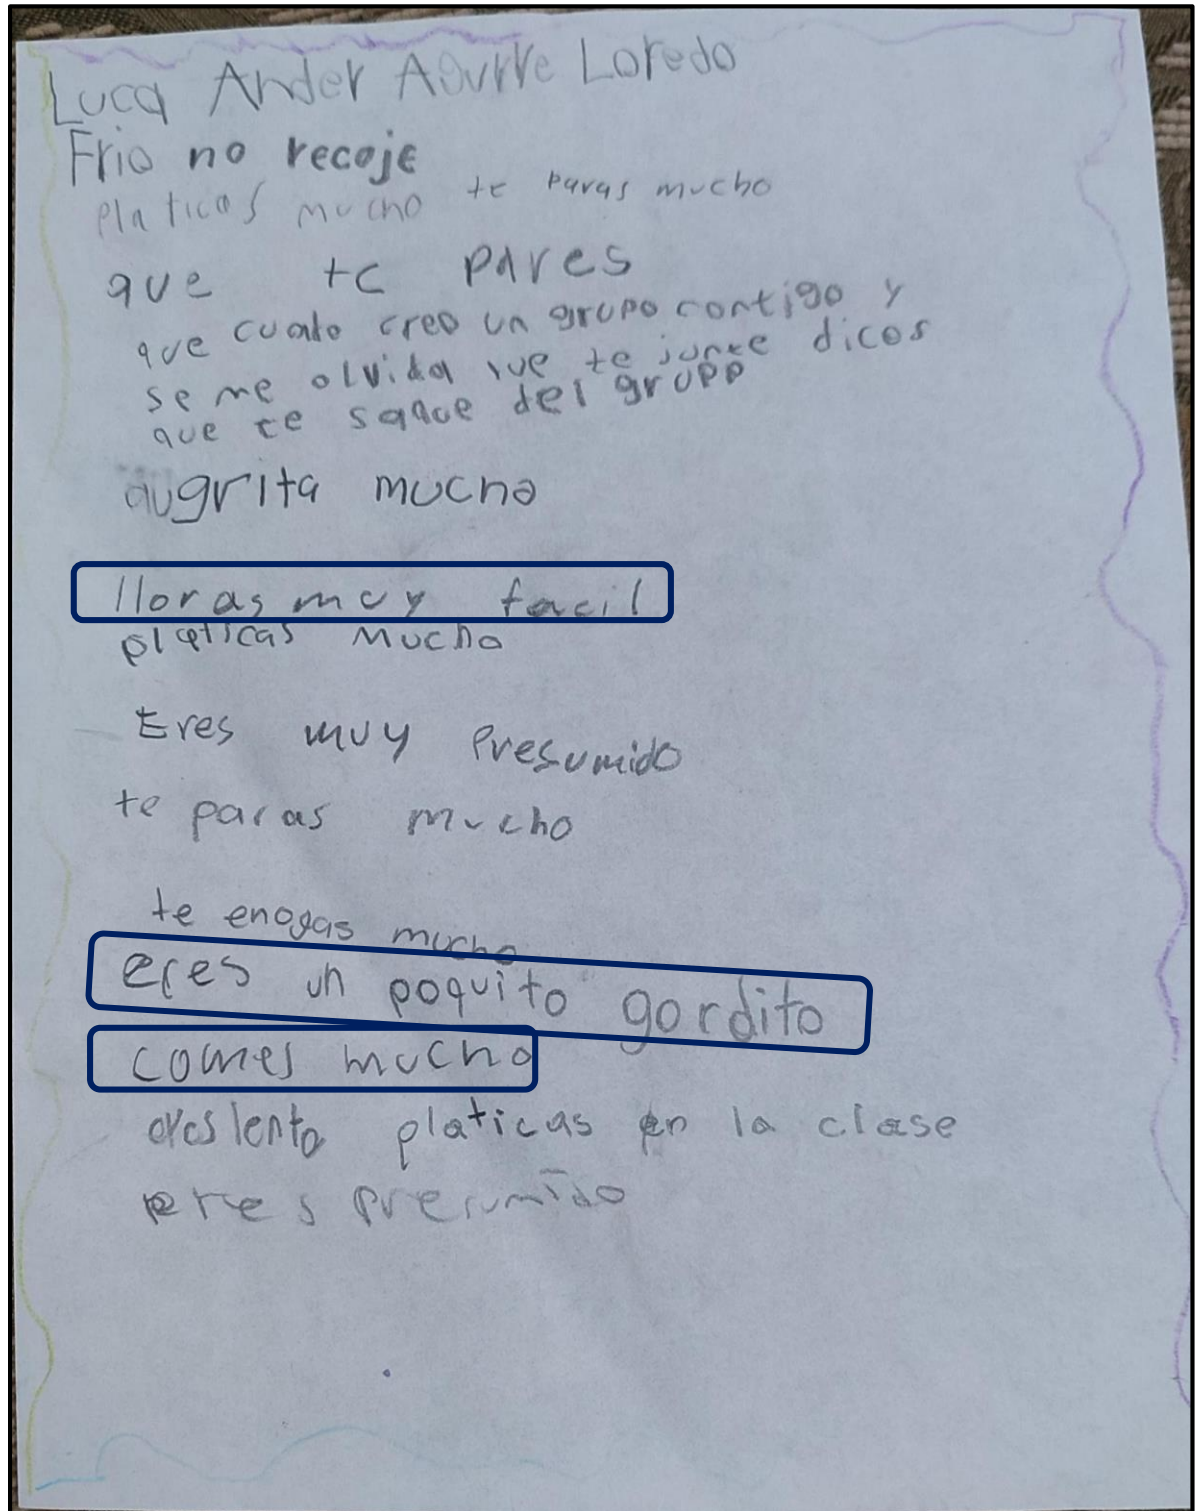 Luca Ander Agurre Loredo
Frio no recoje
Platicas mucho te paras mucho
que te pares
que cuato creo un grupo contigo y
se me olvida que te junte dicos
que te saque del grupo
grita mucho
lloras muy facil
platicas mucho
Eres muy Presumido
te paras mucho
te enogas mucho
eres un poquito gordito
comes mucho
eres lento platicas en la clase
eres presumido